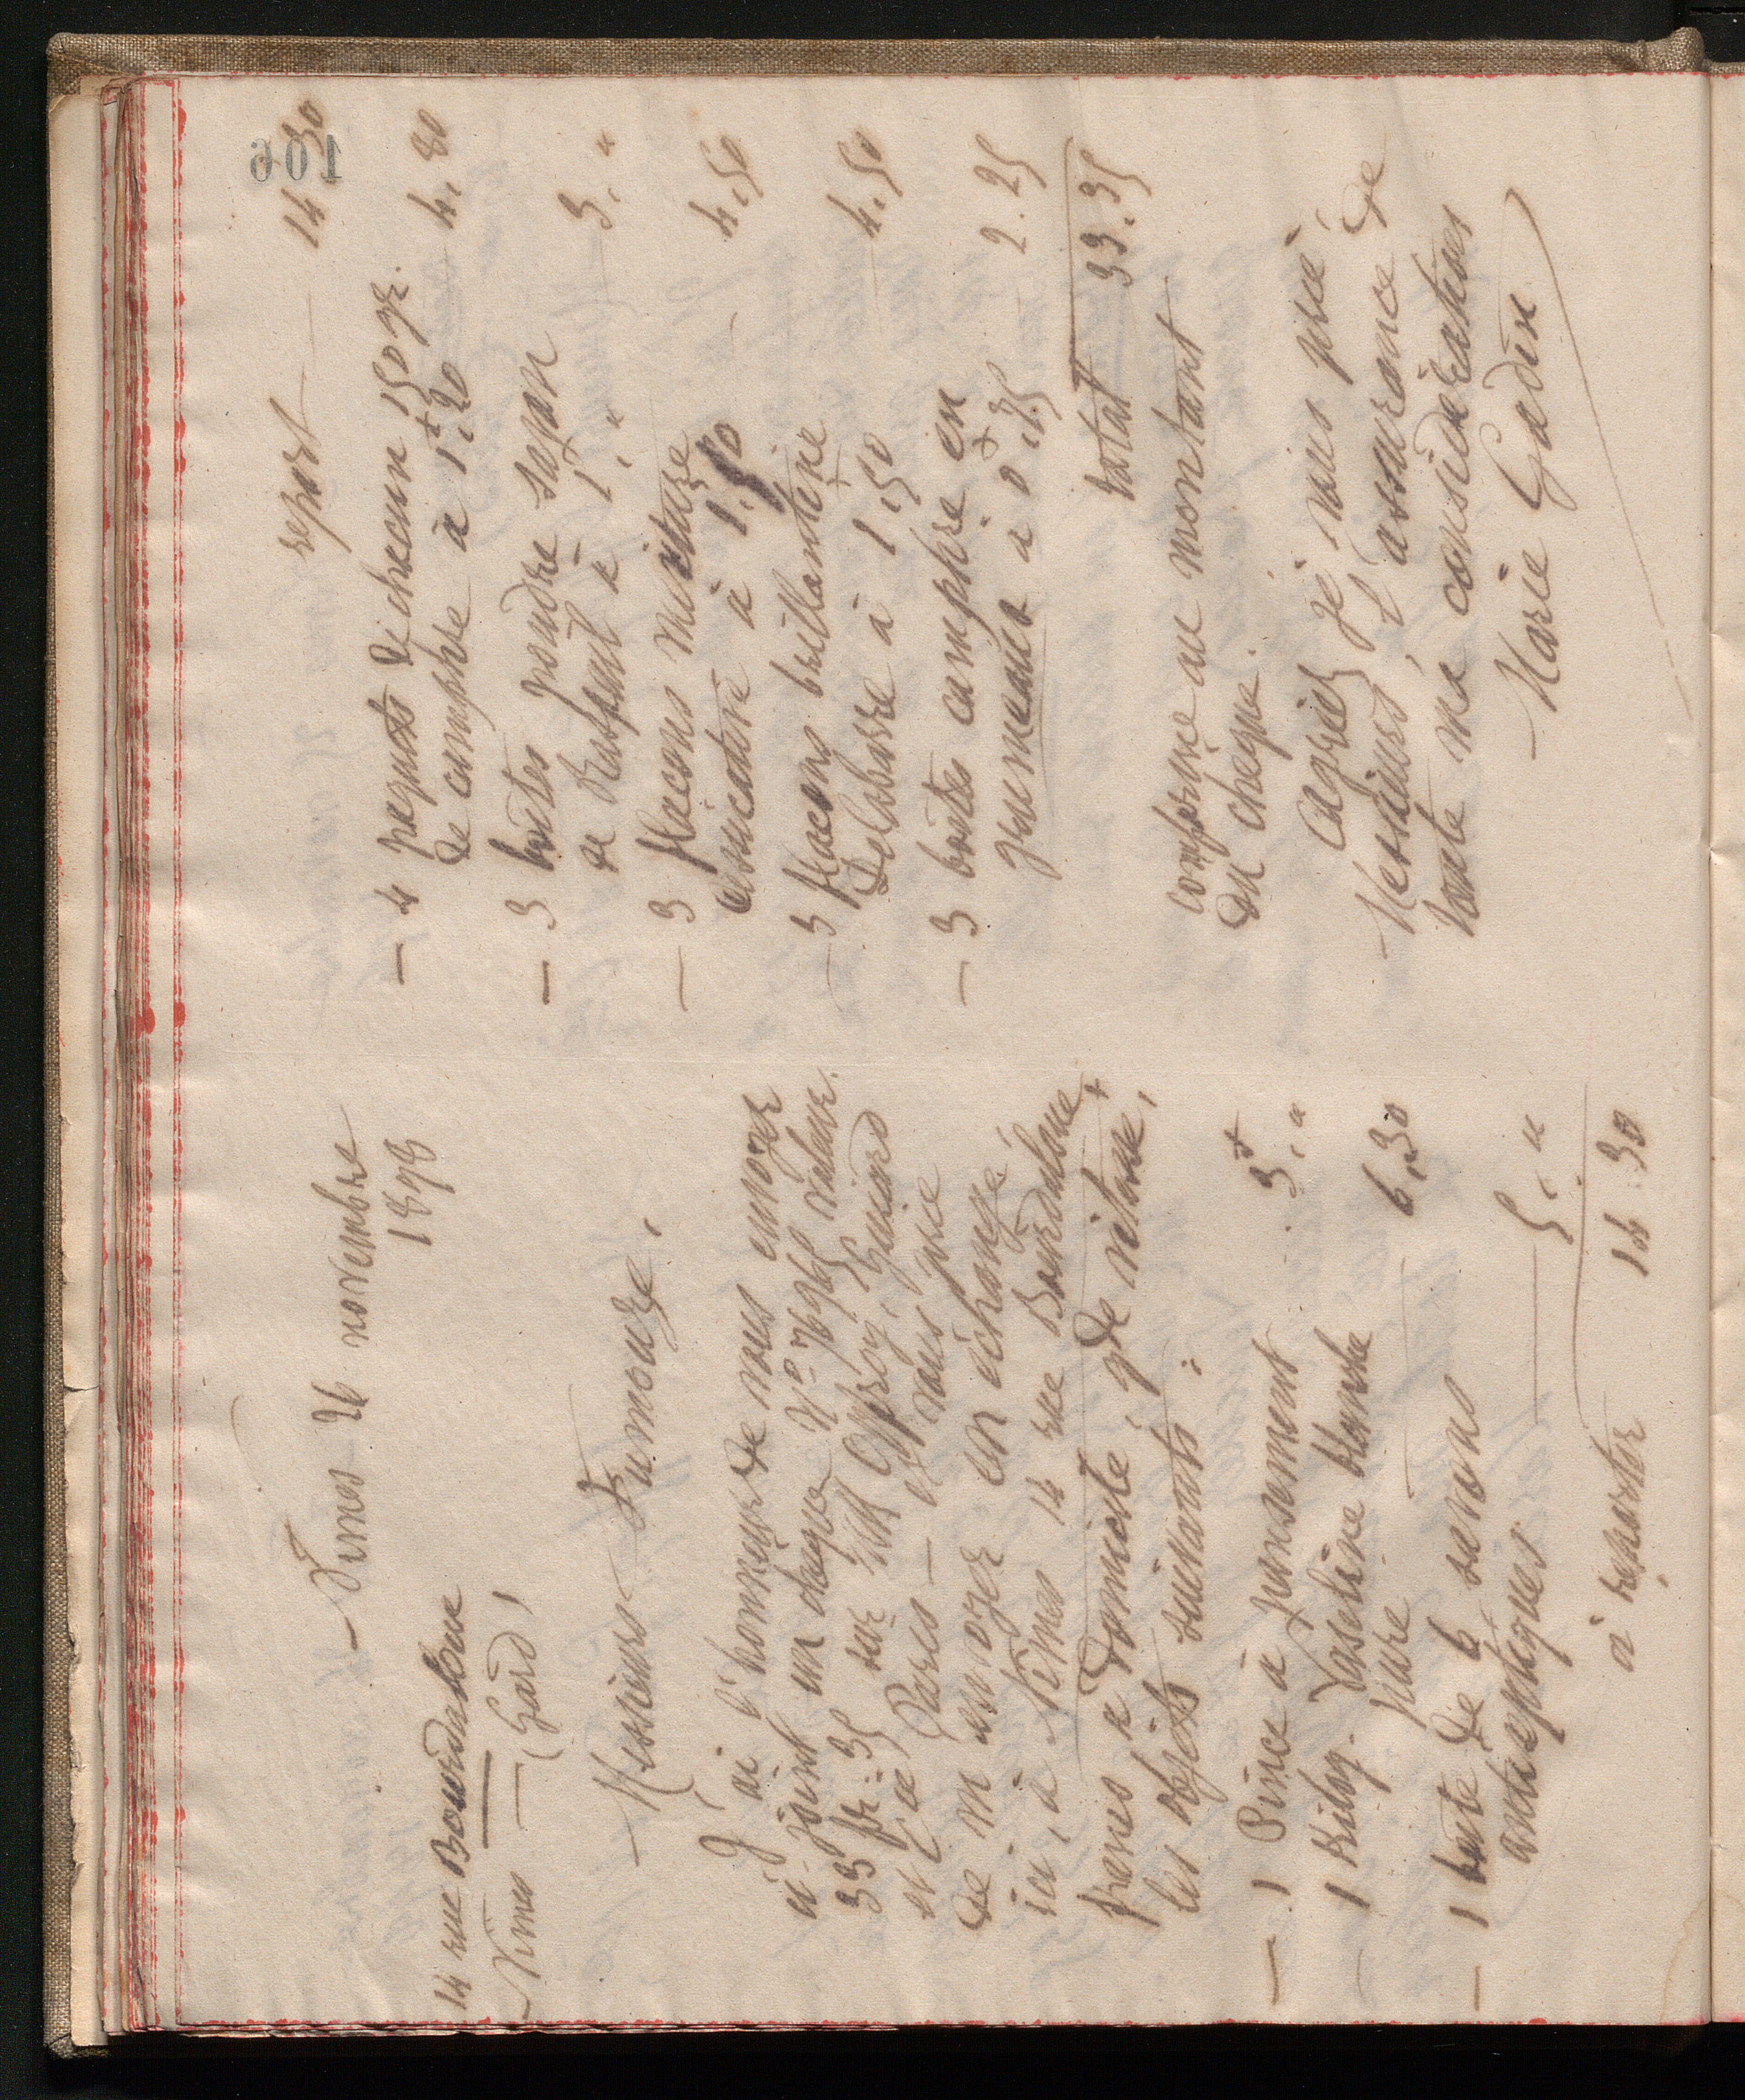 Nimes 26 novembre
1898
14 rue Bourdaloue
Nimes — (Gard)
Messieurs Fumouze,
J'ai l'honneur de vous envoyer
ci-joint un chèque Nº 76965 valeur
33 fr. 35 sur MM Offroy, Guiard
et Cie Paris — et vous prie
de m'envoyer en échange,
ici, à Nimes 14 rue Bourdaloue,
franco à domicile, gde vitesse,
les objets suivants :
— 1 Pince à pansement 3f, "
— 1 kilog. Vaseline blanche
pure — 6,30
— 1 boite de 6 savons
antiseptiques — 5, "
à reporter 14 30
report — 14 30
— 4 paquets de chacun 150 gr.
de camphre à 1f,20 4,80
— 3 boites poudre savon
à 1f, " 3, "
— 3 flacons mixture
à 1,50 — 4,50
— 3 flacons brillantine
à 1f,50 4,50
— 3 boites camphre en
à 0f,75 2.25
total 33.35
conforme au montant
du chèque.
Agréez je vous prie,
Messieurs, l'assurance de
toute ma considération
Marie Godin
601